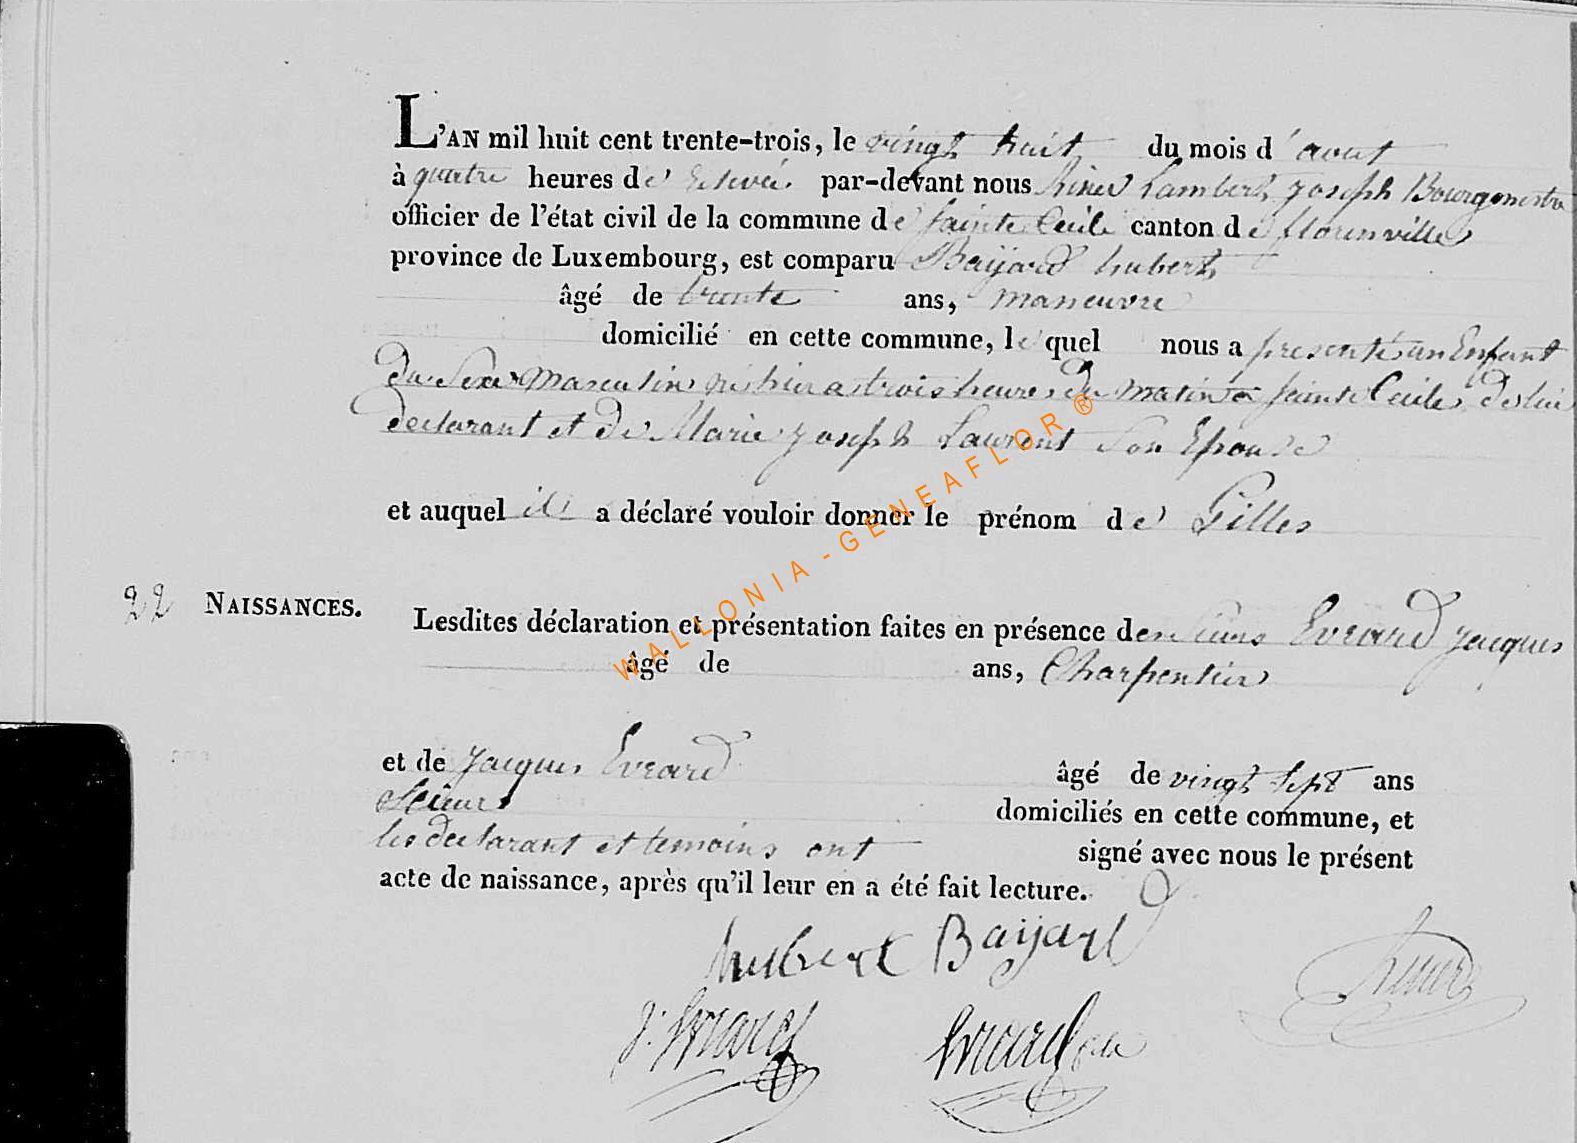 L'AN mil huit cent trente-trois, le vingt huit du mois d'aout
à quatre heures de relevée par-devant nous Lambert joseph Bourgmestre
officier de l'état civil de la commune de sainte Cecile canton de florenville
province de Luxembourg, est comparu Baijard hubert
âgé de trente ans, maneuvre
domicilié en cette commune, le quel nous a presenté un Enfant
du Sexe Masculin né hier a trois heures du matin a sainte Cecile de lui
declarant et de Marie joseph Laurent Son Epouse
et auquel il a déclaré vouloir donner le prénom de Gilles
22 NAISSANCES.
Lesdites déclaration et présentation faites en présence des Sieurs Evrard jacques
âgé de ans, Charpentier
et de jacques Evrard âgé de vingt Sept ans
Scieur domiciliés en cette commune, et
les declarant et temoins ont signé avec nous le présent
acte de naissance, après qu'il leur en a été fait lecture.
hubert Baijard
j. Evrard Evrard
WALLONIA - GENEAFLOR ®